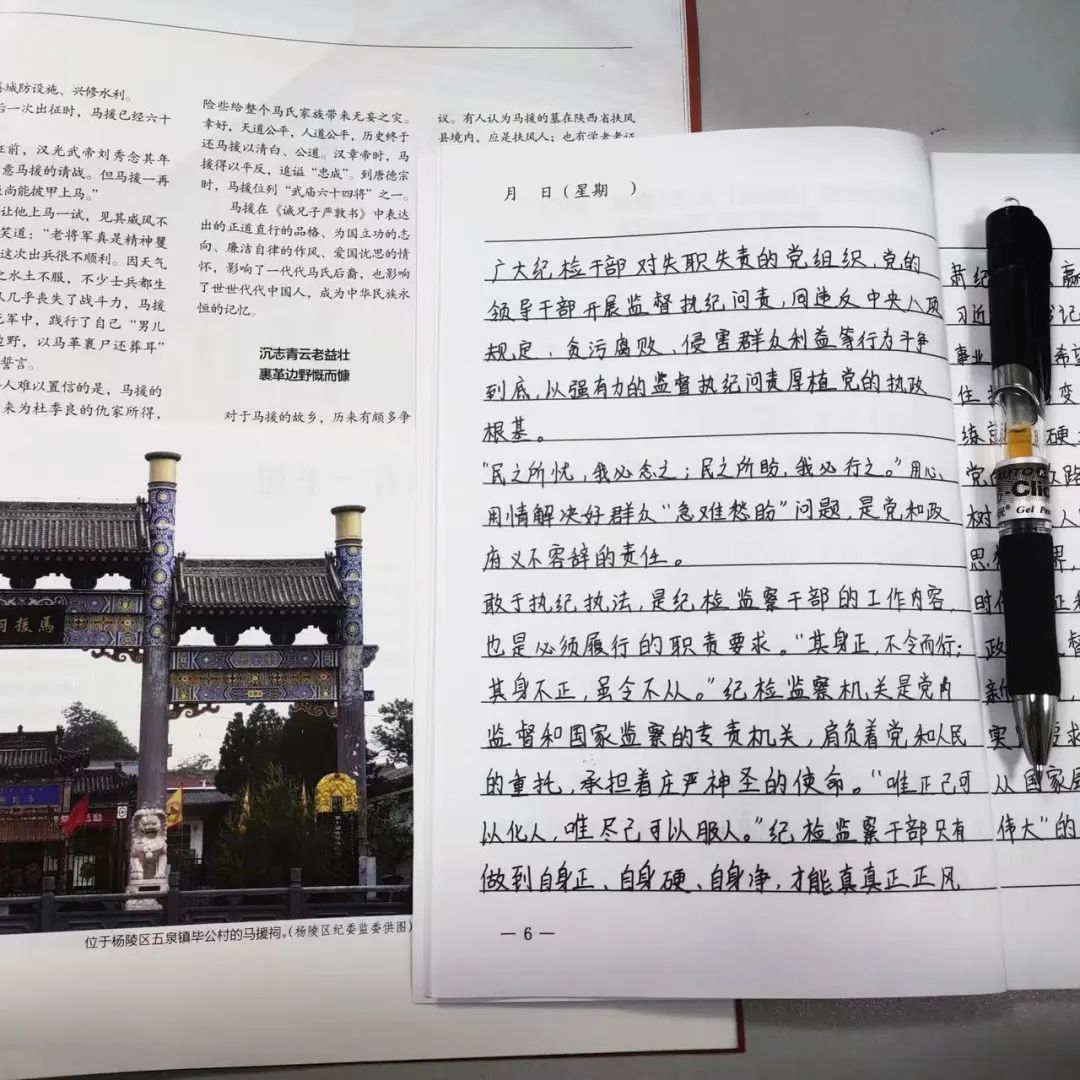 城防设施、兴修水利。
后一次出征时，马援已经六十
征前，汉光武帝刘秀念其年
意马援的请战。但马援一再
尚能披甲上马。”
让他上马一试，见其威风不
笑道：“老将军真是精神矍
这次出兵很不利。因天气
水土不服，不少士兵都生
几乎丧失了战斗力，马援
军中，践行了自己“男儿
边野，以马革裹尸还葬耳”
誓言。
人难以置信的是，马援的
来为杜季良的仇家所得，
险些给整个马氏家族带来无妄之灾。
幸好，天道公平，人道公平，历史终于
还马援以清白、公道。汉章帝时，马
援得以平反，追谥“忠成”。到唐德宗
时，马援位列“武庙六十四将”之一。
马援在《诫兄子严敦书》中表达
出的正道直行的品格、为国立功的志
向、廉洁自律的作风、爱国忧思的情
怀，影响了一代代马氏后裔，也影响
了世世代代中国人，成为中华民族永
恒的记忆。
沉志青云老益壮
裹革边野慨而慷
对于马援的故乡，历来有颇多争
议。有人认为马援的墓在陕西省扶风
县境内，应是扶风人；也有学者考证
马援祠
位于杨陵区五泉镇毕公村的马援祠。(杨陵区纪委监委供图)
月 日(星期 )
广大纪检干部对失职失责的党组织、党的
领导干部开展监督执纪问责，同违反中央八项
规定、贪污腐败、侵害群众利益等行为斗争
到底，以强有力的监督执纪问责厚植党的执政
根基。
“民之所忧，我必念之；民之所盼，我必行之。”用心、
用情解决好群众“急难愁盼”问题，是党和政
府义不容辞的责任。
敢于执纪执法，是纪检监察干部的工作内容，
也是必须履行的职责要求。“其身正，不令而行；
其身不正，虽令不从。”纪检监察机关是党内
监督和国家监察的专责机关，肩负着党和人民
的重托，承担着庄严神圣的使命。“唯正己可
以化人，唯尽己可以服人。”纪检监察干部只有
做到自身正、自身硬、自身净，才能真真正正风
— 6 —
肃纪
习近 书记
事业 希望
住 变
练 硬
党 路
树 人
思想
时代
政 督
新
实 要求
从国家
伟大”的
Clic
Gel Pen